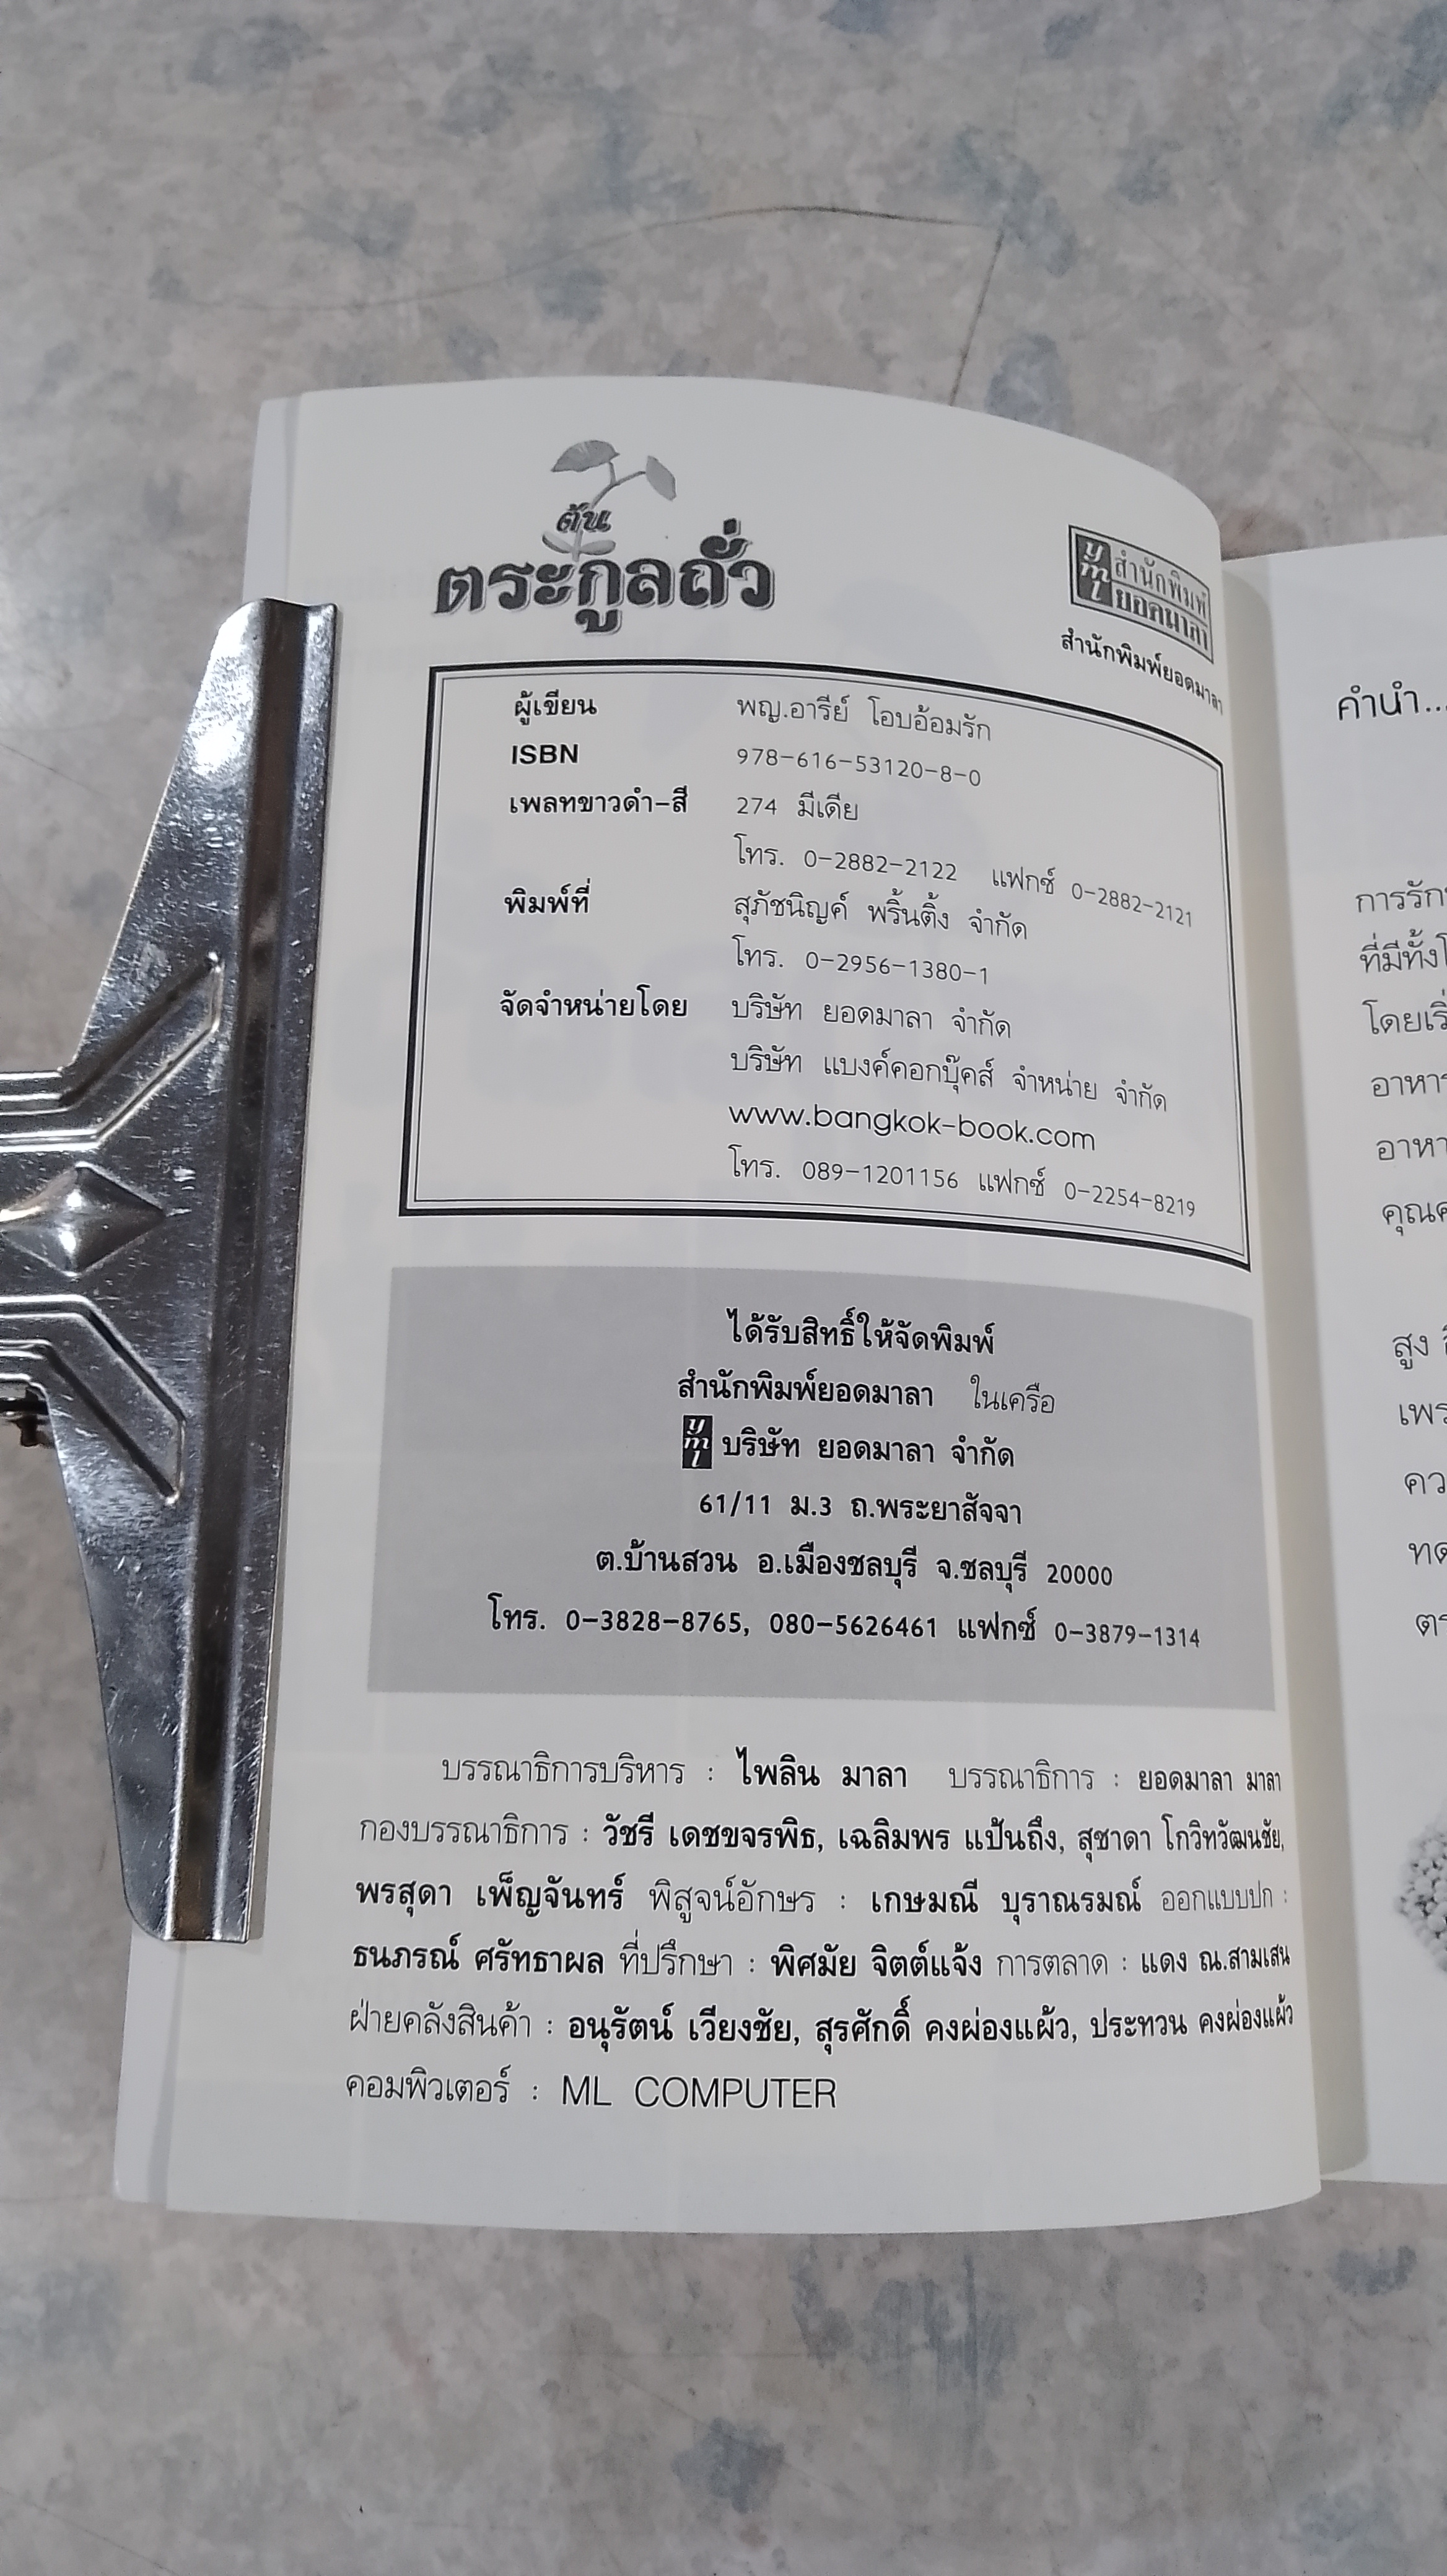 ต้น
ตระกูลถั่ว
yml สำนักพิมพ์
ยอดมาลา
สำนักพิมพ์ยอดมาลา
ผู้เขียน พญ.อารีย์ โอบอ้อมรัก
ISBN 978-616-53120-8-0
เพลทขาวดำ-สี 274 มีเดีย
โทร. 0-2882-2122 แฟกซ์ 0-2882-2121
พิมพ์ที่ สุภัชนิญค์ พริ้นติ้ง จำกัด
โทร. 0-2956-1380-1
จัดจำหน่ายโดย บริษัท ยอดมาลา จำกัด
บริษัท แบงค์คอกบุ๊คส์ จำหน่าย จำกัด
www.bangkok-book.com
โทร. 089-1201156 แฟกซ์ 0-2254-8219
ได้รับสิทธิ์ให้จัดพิมพ์
สำนักพิมพ์ยอดมาลา ในเครือ
yml บริษัท ยอดมาลา จำกัด
61/11 ม.3 ถ.พระยาสัจจา
ต.บ้านสวน อ.เมืองชลบุรี จ.ชลบุรี 20000
โทร. 0-3828-8765, 080-5626461 แฟกซ์ 0-3879-1314
บรรณาธิการบริหาร : ไพลิน มาลา บรรณาธิการ : ยอดมาลา มาลา
กองบรรณาธิการ : วัชรี เดชขจรพิธ, เฉลิมพร แป้นถึง, สุชาดา โกวิทวัฒนชัย,
พรสุดา เพ็ญจันทร์ พิสูจน์อักษร : เกษมณี บุราณรมณ์ ออกแบบปก :
ธนภรณ์ ศรัทธาผล ที่ปรึกษา : พิศมัย จิตต์แจ้ง การตลาด : แดง ณ.สามเสน
ฝ่ายคลังสินค้า : อนุรัตน์ เวียงชัย, สุรศักดิ์ คงผ่องแผ้ว, ประทวน คงผ่องแผ้ว
คอมพิวเตอร์ : ML COMPUTER
คำนำ...
การรัก
ที่มีทั้ง
โดยเริ่
อาหาร
อาหา
คุณค
สูง
เพร
คว
ทด
ตร